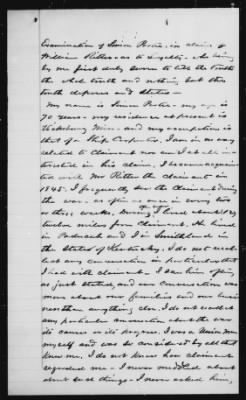 Examination of Simon Porter, in claim of
William Ritter as to loyalty. He being
by me first duly sworn to tell the truth
the whole truth and nothing but the
truth deposes and states—
My name is Simon Porter my age is
70 years— my residence at present is
Vicksburg Miss— and my occupation is
that of a Ship Carpenter, I am in no way
related to Claimant nor am I at all in-
terested in his claim, I became acquain-
ted with Mr Ritter the claimant in
1845. I frequently saw the Claimant during
the war— as often as once in every two
or three weeks, During I lived about
twelve miles from Claimant, He lived
in Paducah and I in Smithland in
the State of Kentucky, I do not recol-
lect any conversation in particular that
I had with claimant— I saw him often,
as just stated, and our conversation was
more about our families and our busi-
ness than anything else. I do not recollect
any particular conversation about the war
its cause or its progress, I was a Union man
myself and was so considered by all that
knew me, I do not know how claimant
regarded me— I never meddled about
about such things— I never asked him,